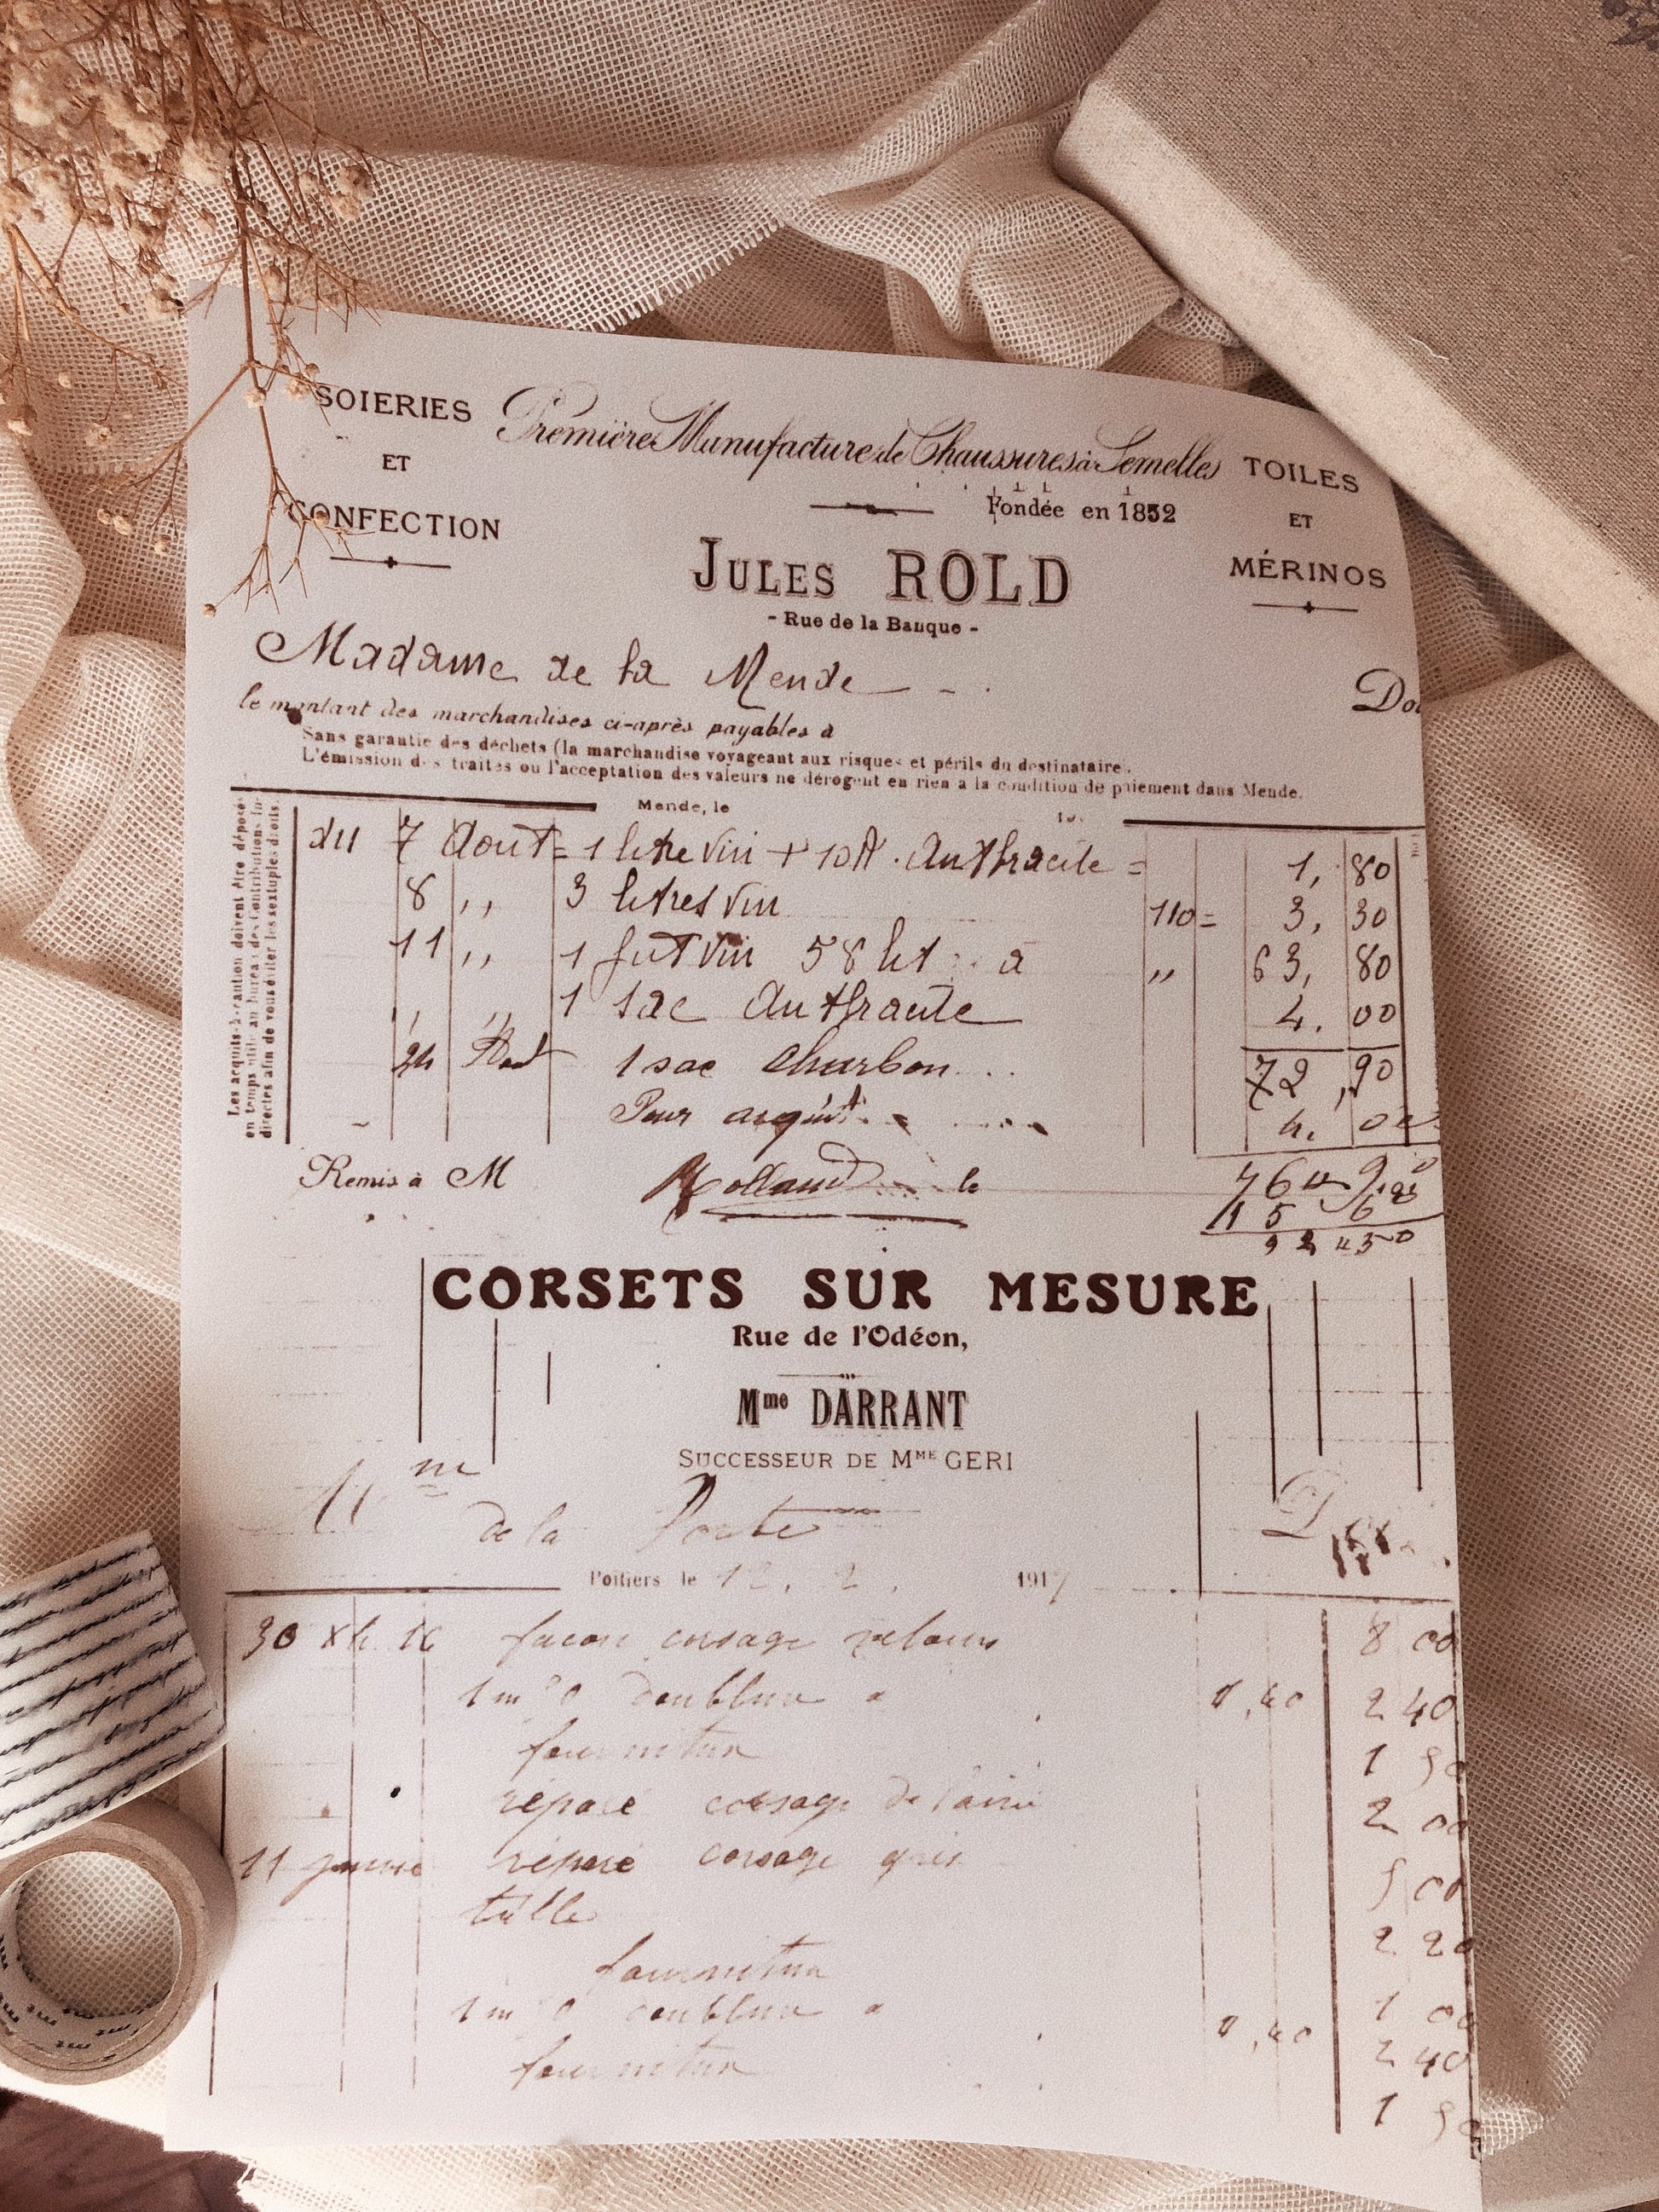 SOIERIES
ET
CONFECTION
Première Manufacture de Chaussures à Semelles
Fondée en 1852
TOILES
ET
MÉRINOS
JULES ROLD
- Rue de la Banque -
Madame de la Mende
Do
le montant des marchandises ci-après payables à
Sans garantie des déchets (la marchandise voyageant aux risques et périls du destinataire.
L'émission des traites ou l'acceptation des valeurs ne dérogent en rien a la condition de paiement dans Mende.
Mende, le
Les acquits-à-caution doivent être dépo
en temps utile au bureau des Contributions In-
directes afin de vous éviter les sextuples droits.
du 7 Aout = 1 litre Vin + 10 . Anthracite = 1, 80
8 ,, 3 litres Vin 110 = 3, 30
11 ,, 1 fut Vin 58 lit à ,, 63, 80
,, ,, 1 sac Anthracite 4. 00
72, 90
24 1 sac Charbon ...
Pour acquit 4. 00
Remis à M Rolland le
76
15
92 50
CORSETS SUR MESURE
Rue de l'Odéon,
Mme DARRANT
SUCCESSEUR DE MME GERI
de la Porte
D
Poitiers le 12. 2. 1917
30 façon corsage velours 8 00
1 m doublure à 2 40
fourniture 1 50
réparé corsage de 2 00
11 réparé corsage gris 5 00
tulle 2 20
fourniture 1 00
1 m doublure à 2 40
fourniture 1 50